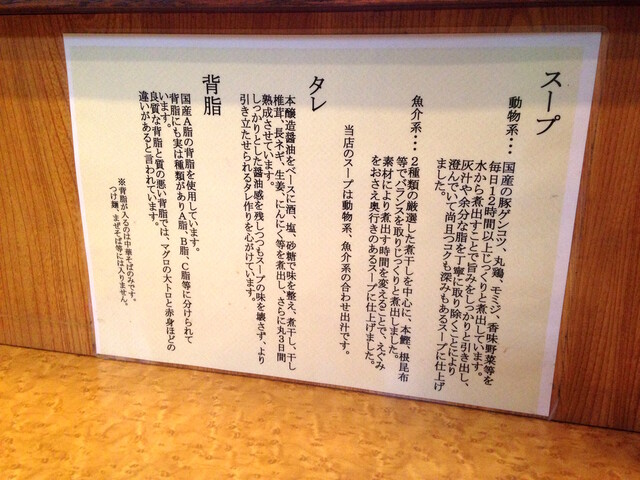 スープ
動物系･･･
国産の豚ゲンコツ、丸鶏、モミジ、香味野菜等を
毎日12時間以上じっくりと煮出しています。
水から煮出すことで旨みをしっかりと引き出し、
灰汁や余分な脂を丁寧に取り除くことにより
澄んでいて尚且つコクも深みもあるスープに仕上げ
ました。
魚介系･･･
2種類の厳選した煮干しを中心に、本鰹、根昆布
等でバランスを取りじっくりと煮出しました。
素材により煮出す時間を変えることで、えぐみ
をおさえ奥行きのあるスープに仕上げました。
当店のスープは動物系、魚介系の合わせ出汁です。
タレ
本醸造醤油をベースに酒、塩、砂糖で味を整え、煮干し、干し
椎茸、長ネギ、生姜、にんにく等を煮出し、さらに丸3日間
熟成させています。
しっかりとした醤油感を残しつつもスープの味を壊さず、より
引き立たせられるタレ作りを心がけています。
背脂
国産A脂の背脂を使用しています。
背脂にも実は種類がありA脂、B脂、C脂等に分けられて
います。
良質な背脂と質の悪い背脂では、マグロの大トロと赤身ほどの
違いがあると言われています。
※背脂が入るのは中華そばのみです。
つけ麺、まぜそば等には入りません。